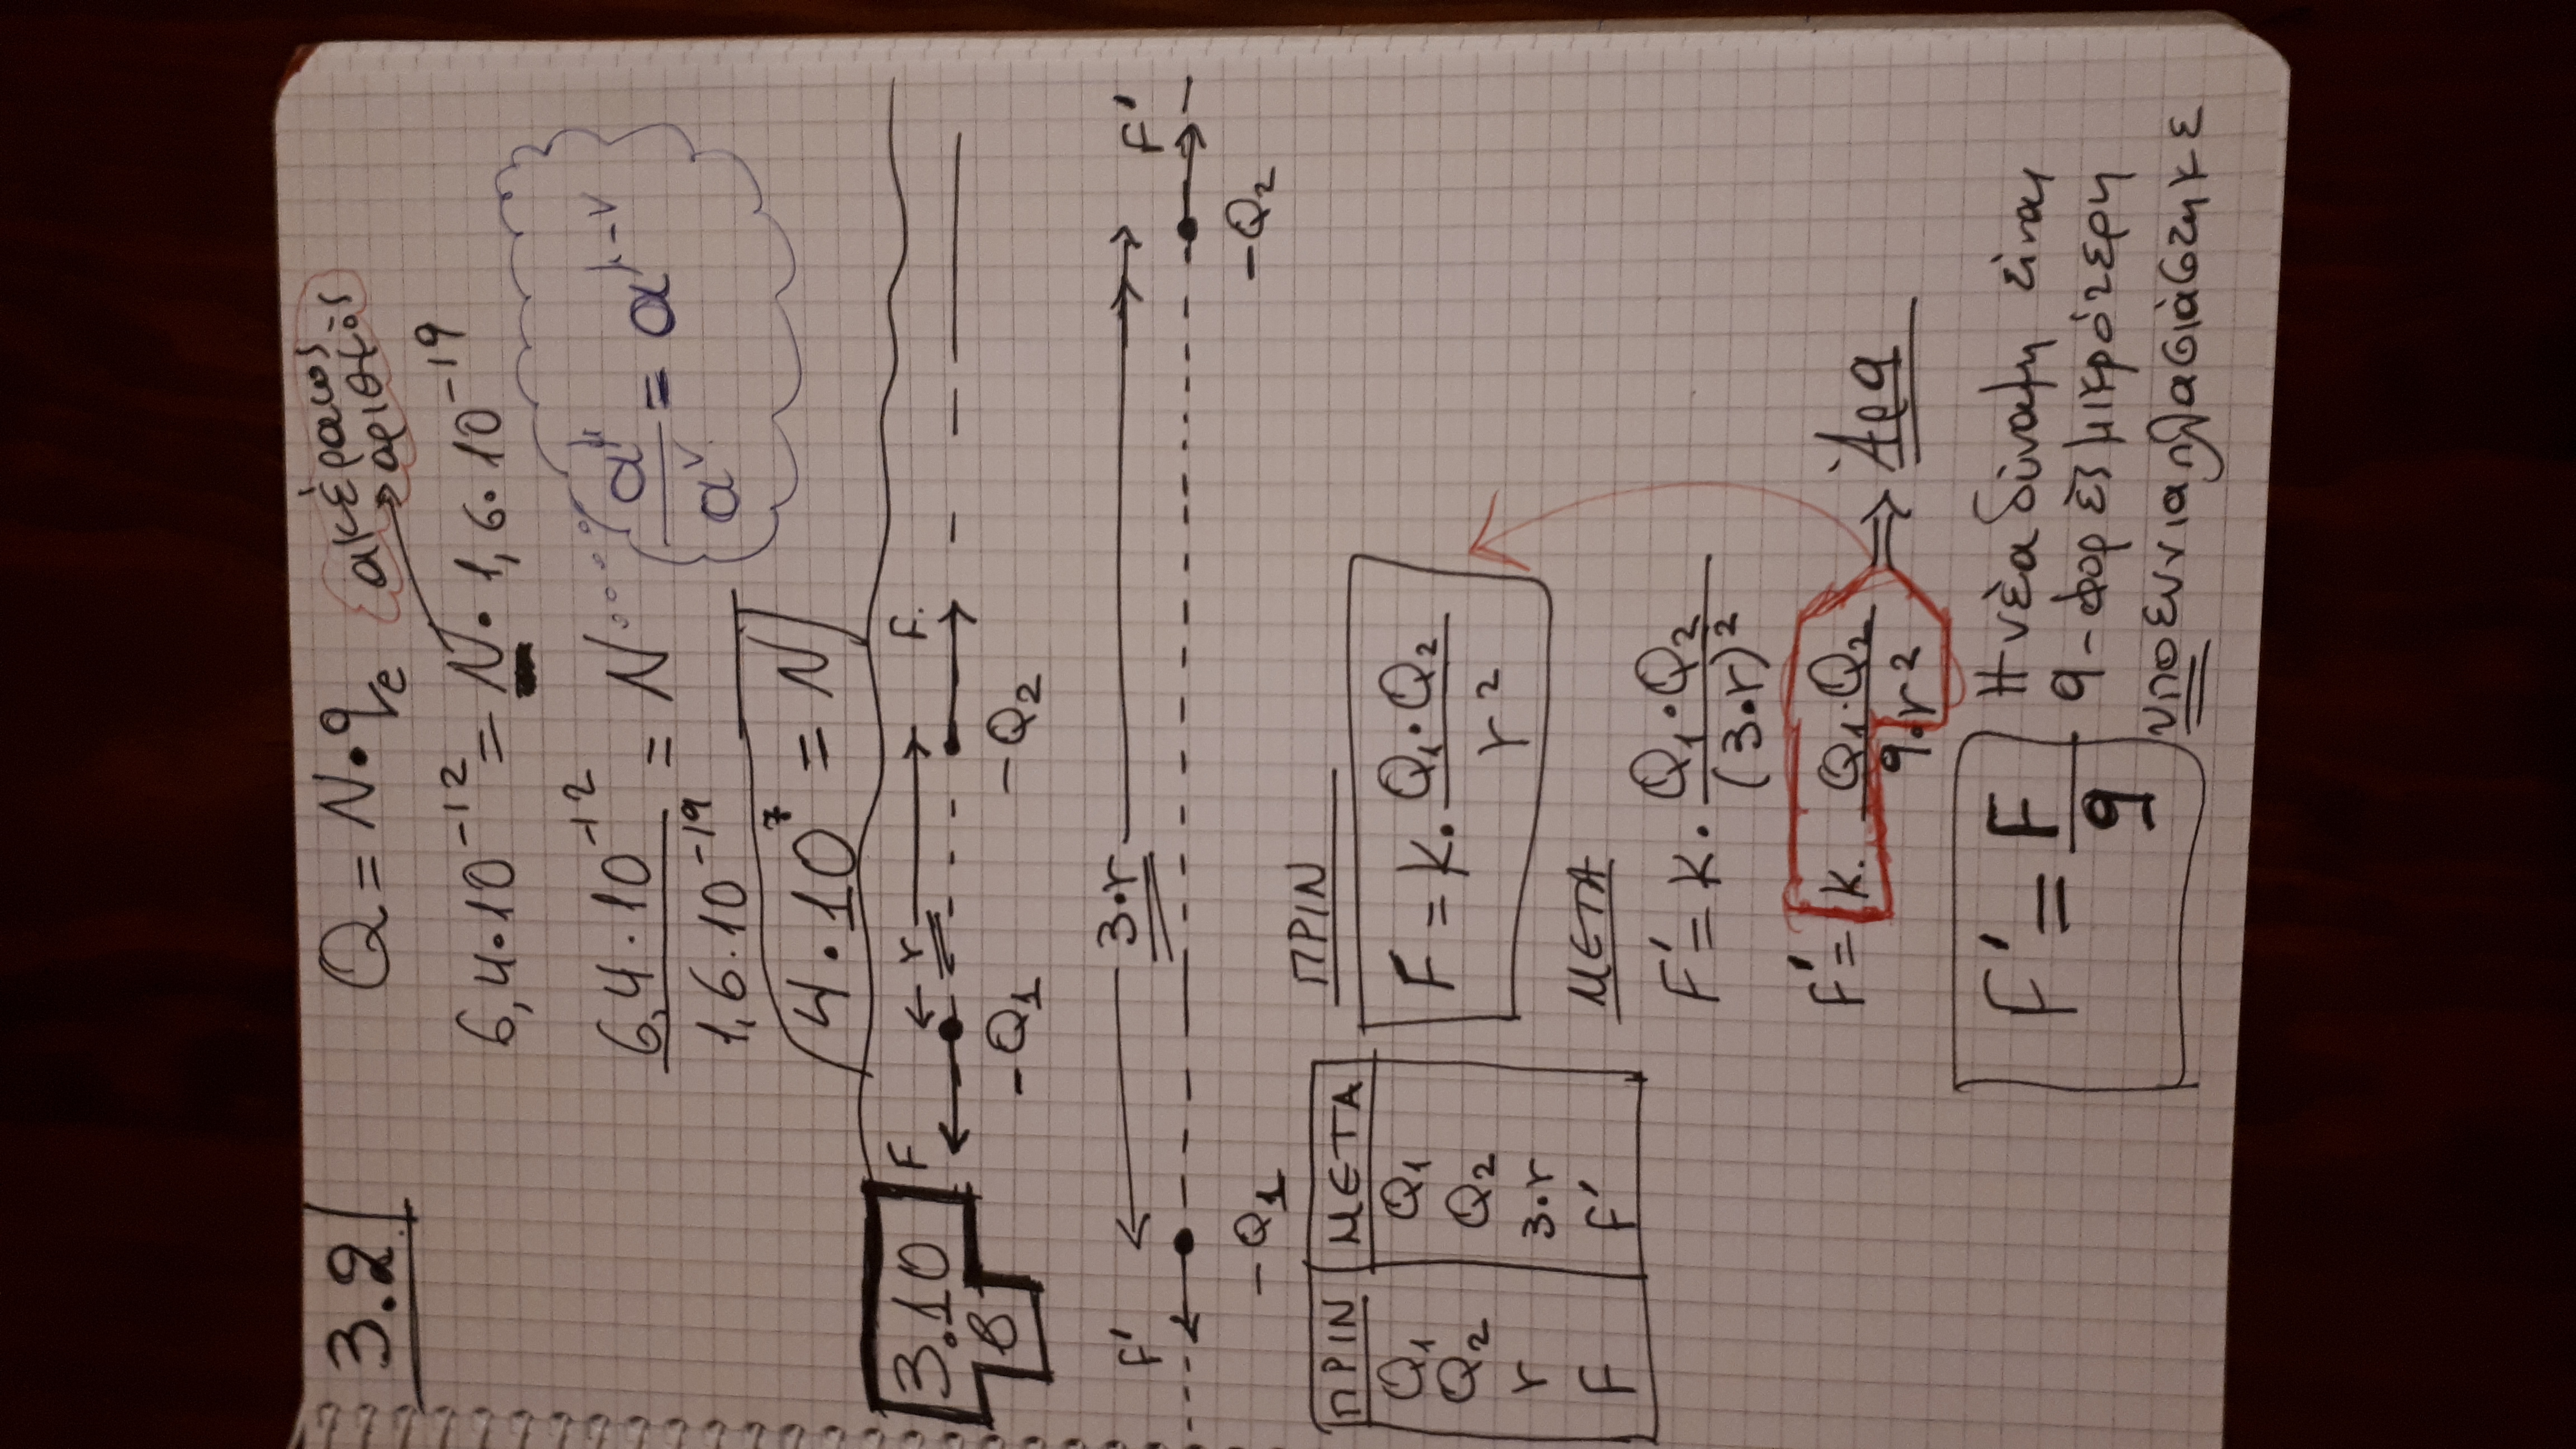 3.2
Q = N·qe
ακέραιος
αριθμός
6,4·10⁻¹² = N·1,6·10⁻¹⁹
6,4·10⁻¹² / 1,6·10⁻¹⁹ = N
α^μ / α^ν = α^μ-ν
4·10⁷ = N
3.10
β
F r F
-Q₁ -Q₂
F' 3·r F'
-Q₁ -Q₂
ΠΡΙΝ ΜΕΤΑ
Q₁ Q₁
Q₂ Q₂
r 3·r
F F'
ΠΡΙΝ
F = K· Q₁·Q₂ / r²
ΜΕΤΑ
F' = K· Q₁·Q₂ / (3·r)²
F' = K· Q₁·Q₂ / 9·r² ⇒ Άρα
F' = F / 9
Η νέα δύναμη είναι
9-φορές μικρότερη
υποεννιαπλασιάστηκε